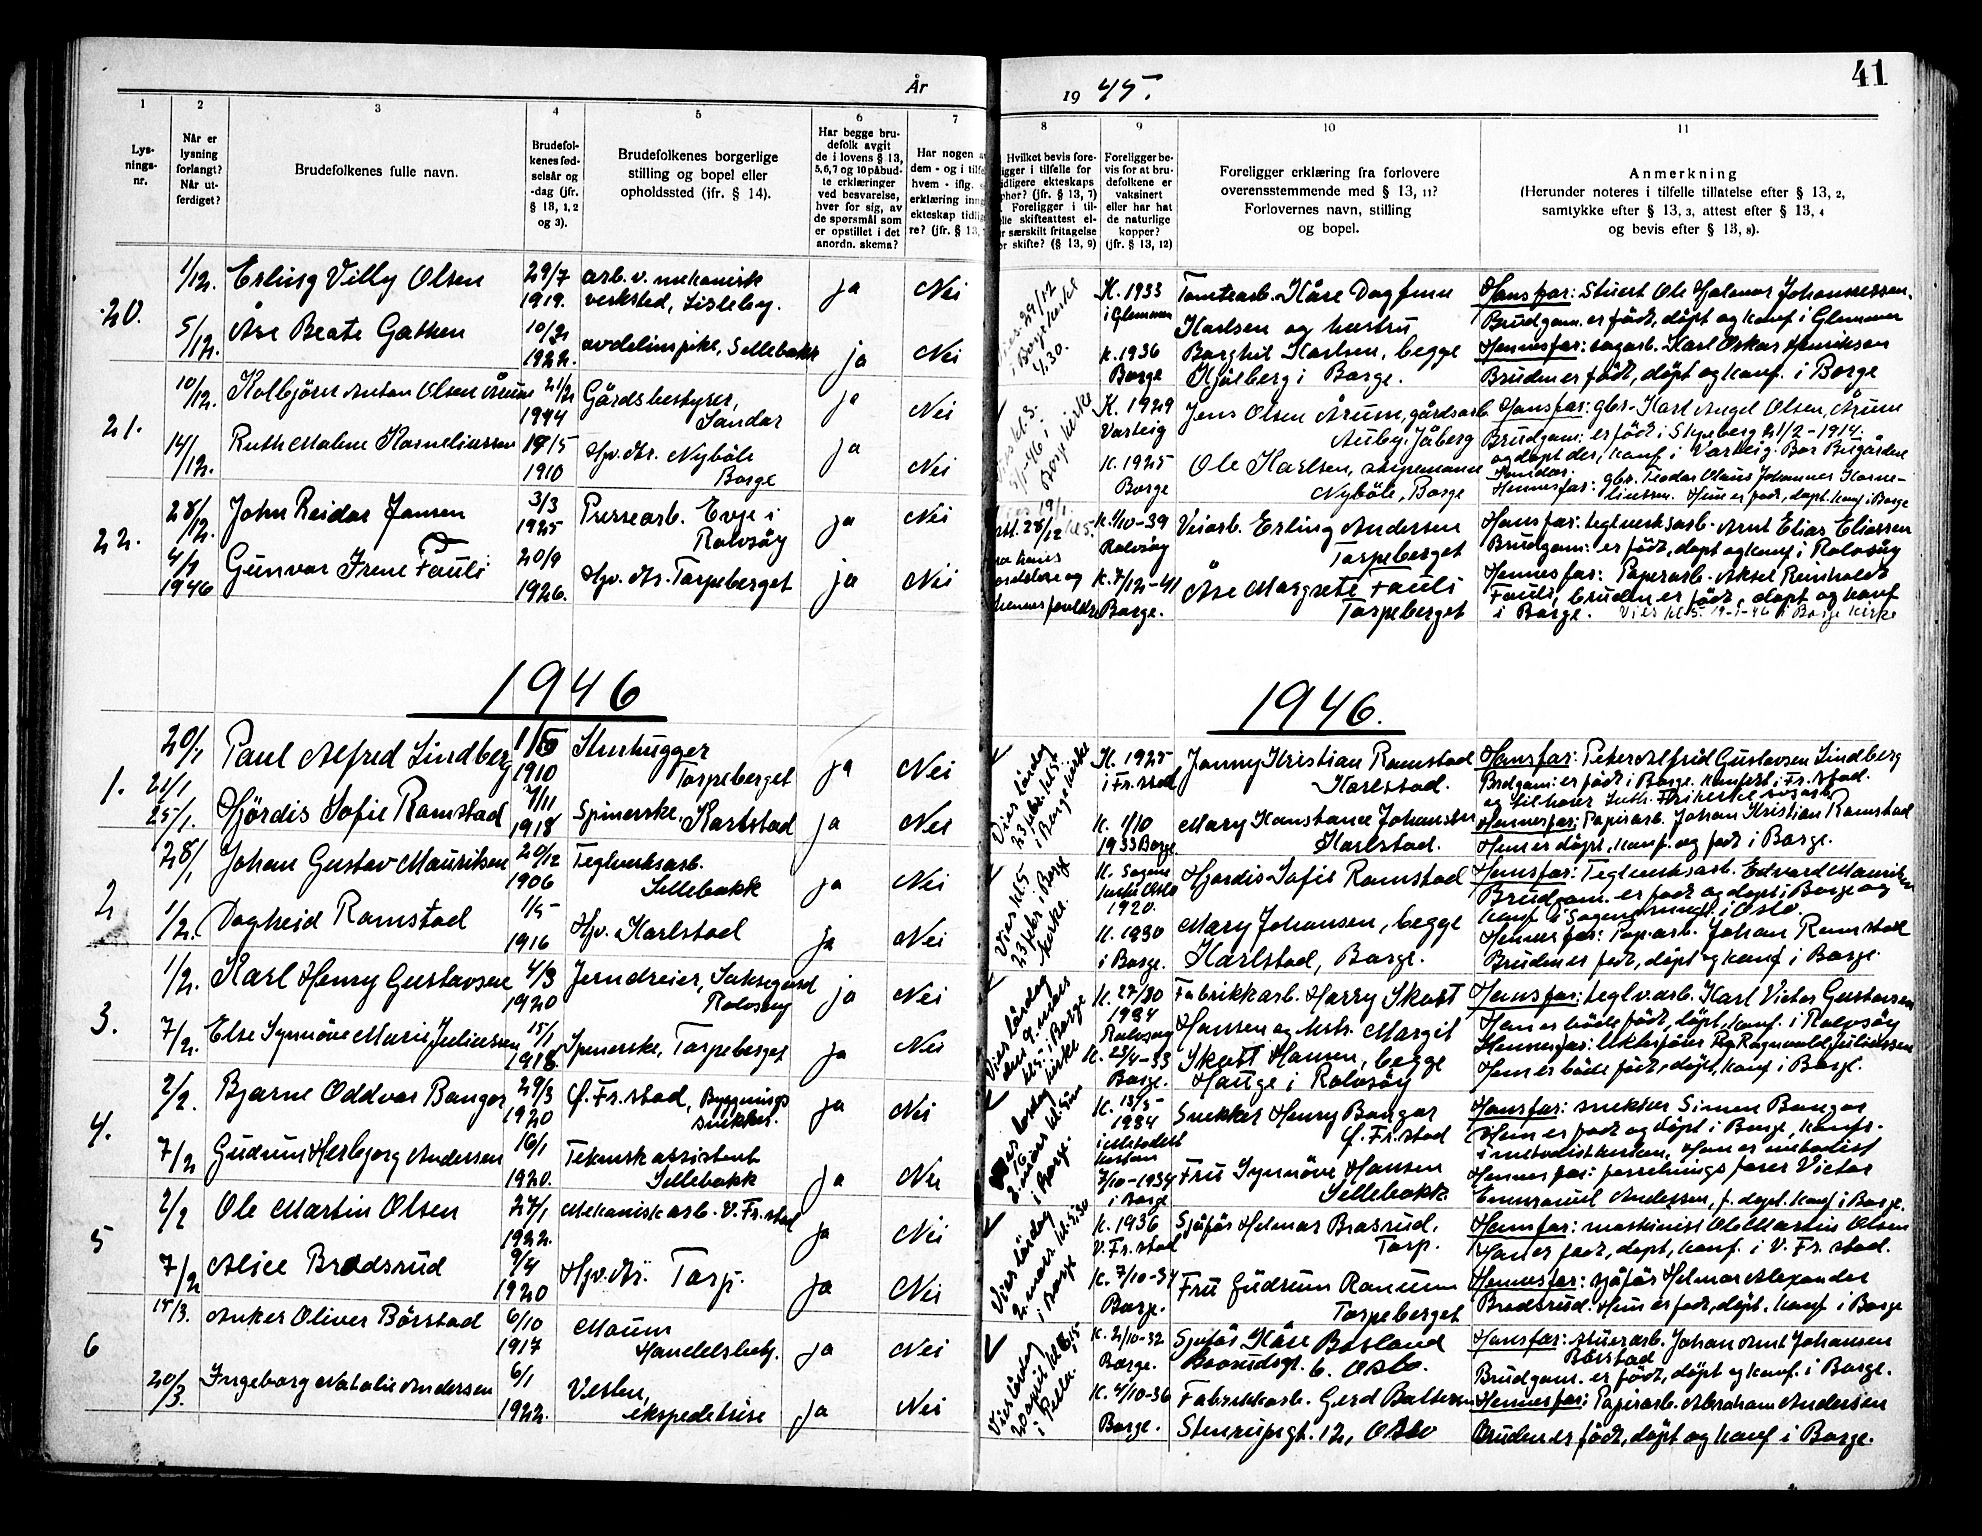 År
19 45.
41
1
2
3
4
5
6
7
8
9
10
11
Lys-
nings-
nr.
Når er
lysning
forlangt?
Når ut-
ferdiget?
Brudefolkenes fulle navn.
Brudefol-
kenes fød-
selsår og
-dag (jfr.
§ 18, 1, 2
og 3).
Brudefolkenes borgerlige
stilling og bopel eller
opholdssted (ifr. § 14).
Har begge bru-
defolk avgit
de i lovens § 13,
5, 6, 7 og 10 påbud-
te erklæringer
ved besvarelse,
hver for sig, av
de spørsmål som
er opstillet i det
anordn. skema?
Har nogen
dem - og i
hvem - iflg.
erklæring
ekteskap
re? (jfr. § 13,
Hvilket bevis fore-
ligger i tilfelle for
tidligere ekteskaps
ophør? (jfr. § 13, 7)
Foreligger i til-
elle skifteattest el-
særskilt fritagelse
for skifte? (§ 13, 9)
Foreligger be-
vis for at bru-
defolkene er
vaksinert
eller har hat
de naturlige
kopper?
(jfr. § 13, 12)
Foreligger erklæring fra forlovere
overensstemmende med § 13, 11?
Forlovernes navn, stilling
og bopel.
Anmerkning
(Herunder noteres i tilfelle tillatelse efter § 13, 2,
samtykke efter § 13, 3, attest efter § 13, 4
og bevis efter § 13, 8).
20.
1/12. Erling Villy Olsen 29/7 1919. arb. v. mekanisk
verksted, Lisleby. ja Nei
5/12. Åse Beate Gathen 10/2 1922. Sellebakk ja Nei
29/12 i Borge kirke 4.30.
K. 1933 i Glemmen Tomtearb. Kåre Dagfinn
Karlsen og hustru
K. 1936 Borge Borghil Karlsen, begge
Kjølberg i Borge.
Hans far: Stuert Ole Hjalmar Johannessen.
Brudgom. er født, døpt og konf. i Glemmen
Hennes far: sagarb. Karl Oskar Henriksen
Bruden er født, døpt og konf. i Borge
21.
10/12. Kolbjørn Anton Olsen Årum 21/2 1944 Gårdsbestyrer,
Sandar ja Nei
14/12. Ruth Malene Korneliussen 19/5 1910 Hjv. Ar. Nybøle
Borge ja Nei
5/1-46 i Borge kirke
K. 1929 Varteig Jens Olsen Årum, gårdsarb.
Auby, Jåberg
K. 1925 Borge Ole Karlsen,
Nybøle, Borge
Hans far: gbr. Karl Angel Olsen, Årum
Brudgom: er født i Skjeberg 21/2-1914.
og døpt der, konf. i Varteig.
Sandar.
Hennes far: gbr. Teodor Olaus Johannes Korne-
liussen. Hun er født, døpt, konf i Borge
22.
28/12. John Reidar Jansen 3/3 1925 Pressearb. Evje i
Rolvsøy ja Nei
4/1 1946 Gunvor Irene Fauli 20/9 1926. Hjv. Ar. Torpeberget ja Nei
K. 1/10-39 Rolvsøy Veiarb. Erling Andersen
Torpeberget
K. 7/12-41 Borge. Åse Margrete Fauli
Torpeberget
Hans far: teglverksarb. Arnt Elias Eliassen
Brudgom: er født, døpt og konf i Rolvsøy
Hennes far: Papirarb. Aksel Reinholdt
Fauli, bruden er født, døpt og konf
i Borge. Vies kl. 5. 19-1-46 i Borge kirke
1946
1946.
1.
20/1 21/1 Paul Alfred Lindberg 1910 Stenhugger
Torpeberget ja Nei
25/1. Hjördis Sofie Ramstad 7/11 1918 Spinerske, Karlstad ja Nei
Vies lördag 23 febr. kl. 5 i Borge kirke
K. 1925 i Fr. stad Jonny Kristian Ramstad
Karlstad.
K. 1/10 1933 Borge Mary Konstance Johansen
Karlstad.
Hans far: Peter Alfrid Gustavsen Lindberg
Brdgom: er født i Borge. konfert i Fr. stad.
og tilhører Luth. Frikirke
Hennes far: Papirarb. Johan Kristian Ramstad
Hun er døpt, konf. og født i Borge.
2
28/1 Johan Gustav Mauritsen 20/12 1906 Teglverksarb.
Sellebakk ja Nei
1/2. Dagheid Ramstad 1/5 1916 Hjv. Karlstad ja Nei
Vies kl. 5 23 febr. i Borge kirke.
K. Sagene kirke Oslo 1920. Hjördis Sofie Ramstad
K. 1930 i Borge. Mary Johansen, begge
Karlstad, Borge.
Hans far: Teglverksarb. Edvard Mauritsen
Brudgom. er født og døpt i Borge og
konf. i Sagene menigh. i Oslo.
Hennes far: Pap. arb. Johan Ramstad
Bruden er født, døpt, og konf i Borge.
3.
1/2. Karl Henry Gustavsen 4/3 1920 Jerndreier,
Rolvsøy ja Nei
7/2. Else Synnöve Marie Juliussen 15/1 1918 Spinerske, Torpeberget ja Nei
Vies lördag den 9. mars kl. 5 i Borge kirke
K. 1934 Rolvsøy Fabrikkarb. Harry Skott
Hansen og hstr. Margit
K. 23/4-33 Borge. Skott Hansen, begge
Hauge i Rolvsøy
Hans far: teglv. arb. Karl Victor Gustavsen
Han er både født, døpt, konf. i Rolvsøy
Hennes far: Ragnvald Juliussen
Hun er både født, døpt, konf i Borge.
4.
2/2. Bjarne Oddvar Bangor 29/3 1920 Ø. Fr. stad, Bygnings
snekker. ja Nei
7/2 Gudrun Herbjorg Andersen 16/1 1920. Teknsk assistent
Sellebakk ja Nei
lördag 2. mars i Borge.
K. 13/5 1934 i Metodistkirken Snekker Henry Bangor
Ø. Fr. stad
7/10-1934 i Borge Fru Synnöve Hansen
Sellebakk
Hans far: snekker Simen Bangor
Han er født og døpt i Borge, konf.
i metodistkirken, Han er metodist
Hennes far: forretningsfører Victor
Emmanuel Andersen, f. døpt. konf i Borge.
5
2/2 Ole Martin Olsen 27/1 1922. Mekanisk arb. V. Fr. stad ja Nei
7/2 Alice Brodsrud 9/4 1920 Hjv. Ar. Torp. ja Nei
Vies lördag 2. mars kl. 5.30 i Borge
K. 1936 V. Fr. stad Sjåfør Helmar Brosrud.
Torp.
K. 7/10-34 Borge. Fru Gudrun Ranum
Torpeberget
Hans far: maskinist Ole Martin Olsen
Han er født, døpt, konf. i V. Fr. stad.
Hennes far: sjåfør Helmar Alexander
Brodsrud. Hun er født, døpt, konf i Borge
6
15/3. Anker Oliver Börstad 6/10 1917 Moum
Handelsbetj. ja Nei
20/3. Ingeborg Natalie Andersen 6/1 1922. Vesten,
ekspeditrise ja Nei
Vies lördag 20 april i Pella.
K. 2/10-32 Borge. Sjåfør Kåre Börstad
6. Oslo.
K. 4/10-36 Borge. Fabrikkarb. Gerd Baltersen
Stenrupsgt. 12, Oslo
Hans far: stuerarb. Johan Arnt Johansen
Börstad
Brudgom. er født, døpt og konf. i Borge.
Hennes far: Papirarb. Abraham Andersen
Bruden er født, døpt og konf i Borge.